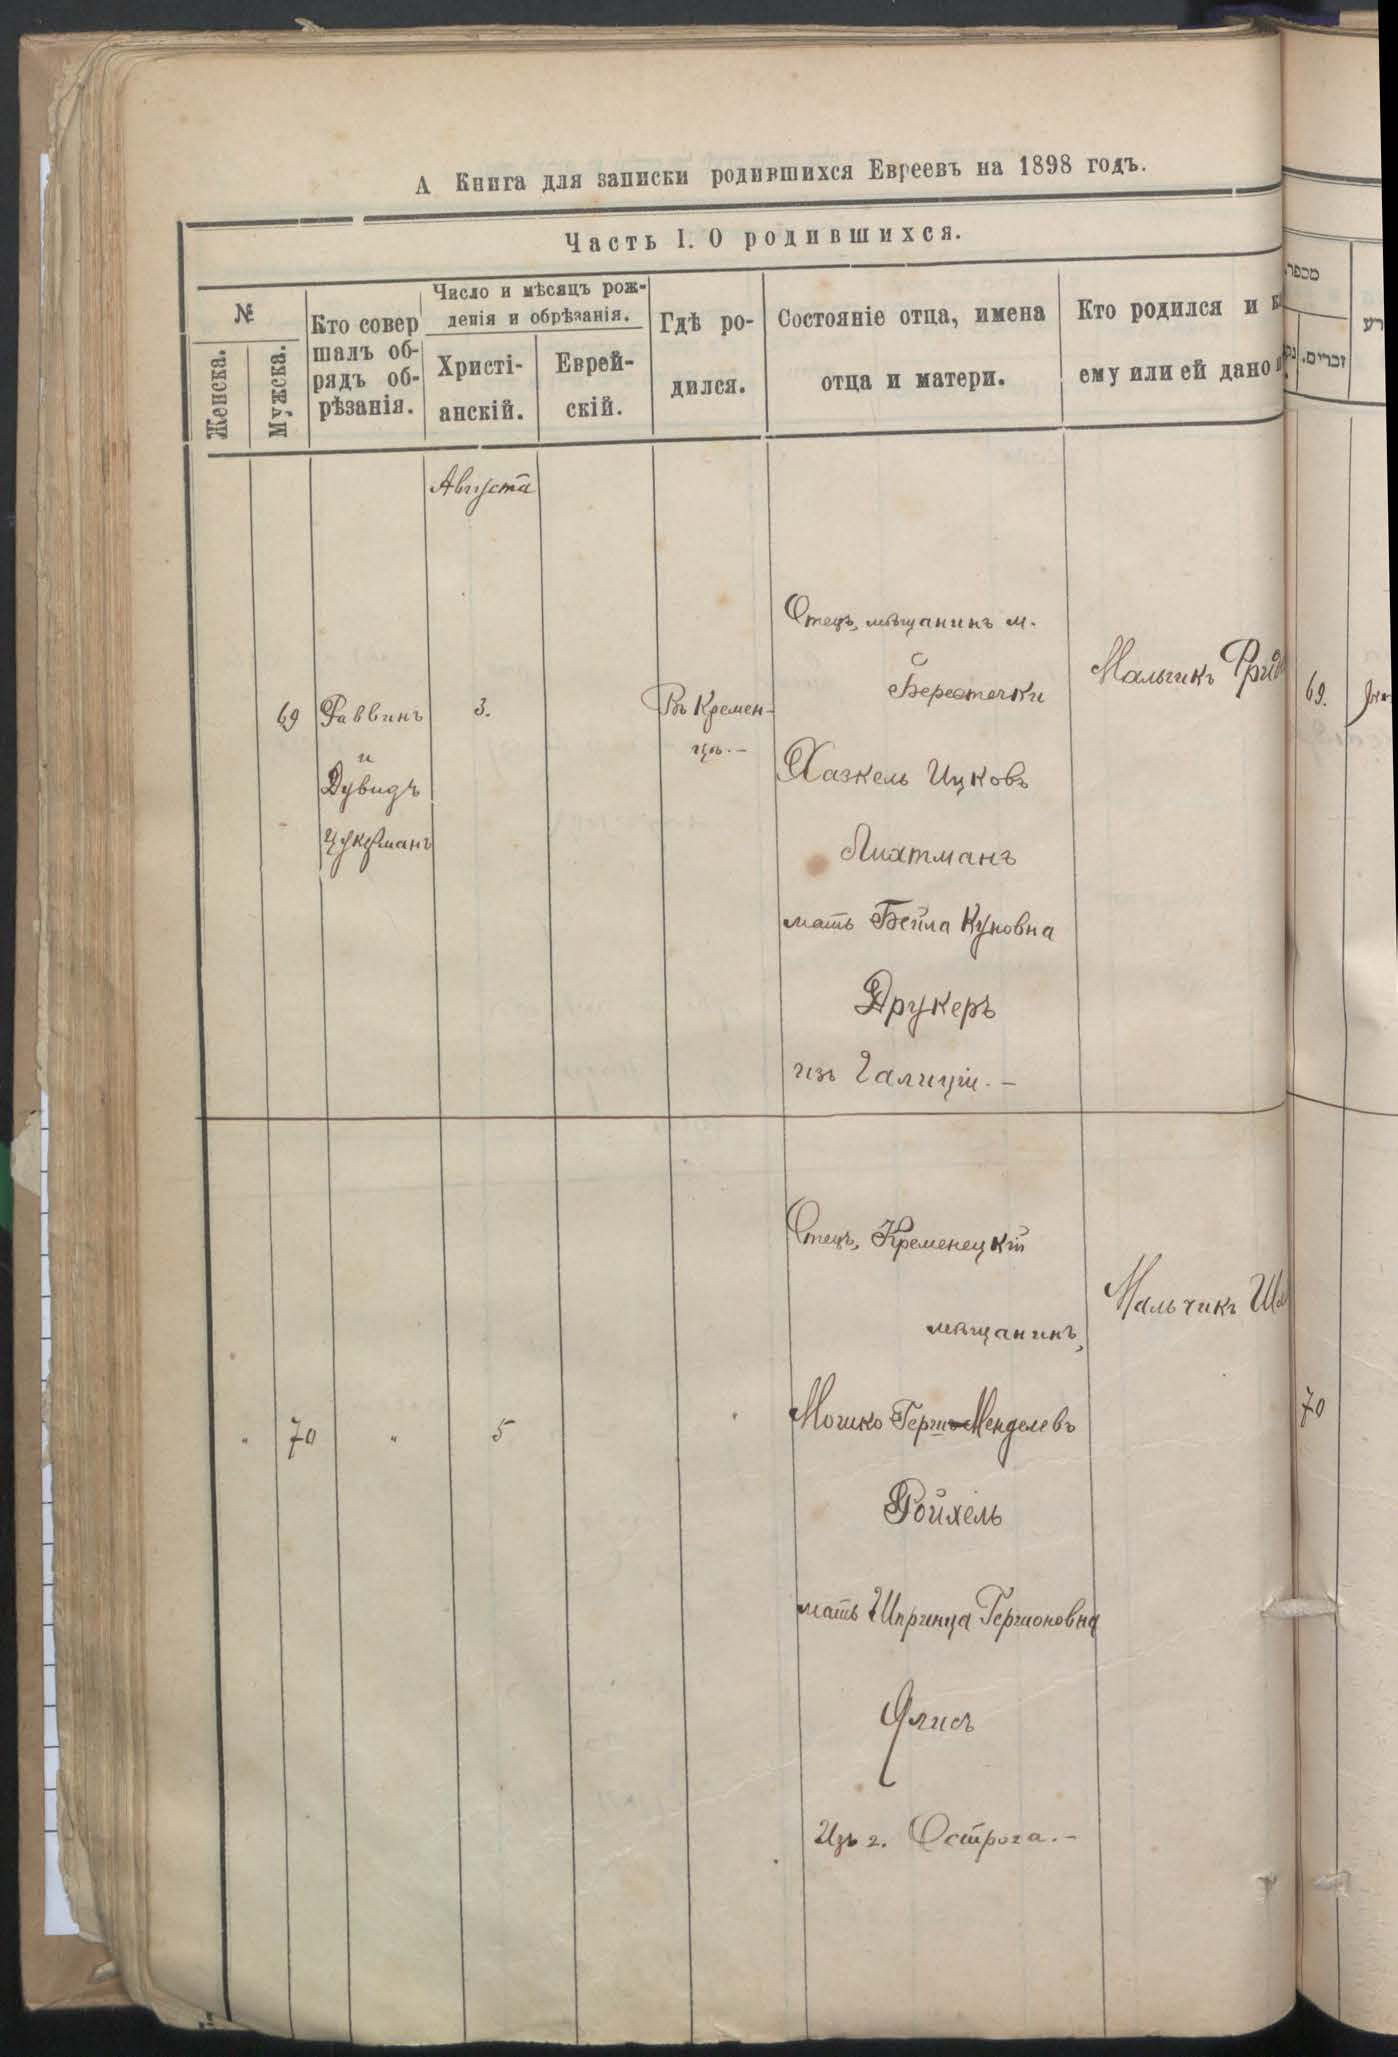 А Книга для записки родившихся Евреевъ на 1898 годъ.
Часть I. О родившихся.
№
Женска.
Мужска.
Кто совер
шалъ об-
рядъ об-
рѣзанія.
Число и мѣсяцъ рож-
денія и обрѣзанія.
Христі-
анскій.
Еврей-
скій.
Гдѣ ро-
дился.
Состояніе отца, имена
отца и матери.
Кто родился и
ему или ей дано
מספר
זכרים.
Августа
69
Раввинъ
и
Дувидъ
Цукерманъ
3.
Въ Кремен-
цѣ.—
Отецъ, мѣщанинъ м.
Берестечки
Хаскель Ицковъ
Лихтманъ
мать Бейла Куновна
Друкеръ
изъ Галиціи.—
Мальчикъ
69.
"
70
"
5
Отецъ, Кременецкій
мѣщанинъ,
Мошко Герш-Менделевъ
Ройхель
мать Шпринца Гершоновна
Ялисъ
Изъ г. Острога.—
Мальчикъ
70